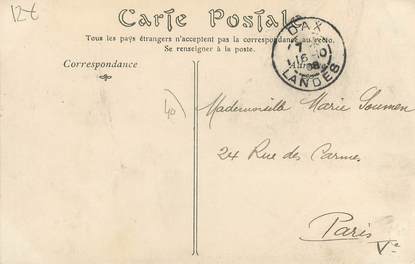 12€
Carte Postale
Tous les pays étrangers n'acceptent pas la correspondance au recto.
Se renseigner à la poste.
DAX
16
LANDES
Correspondance
40)
Mademoiselle Marie
24 Rue des Carmes
Paris
Ve